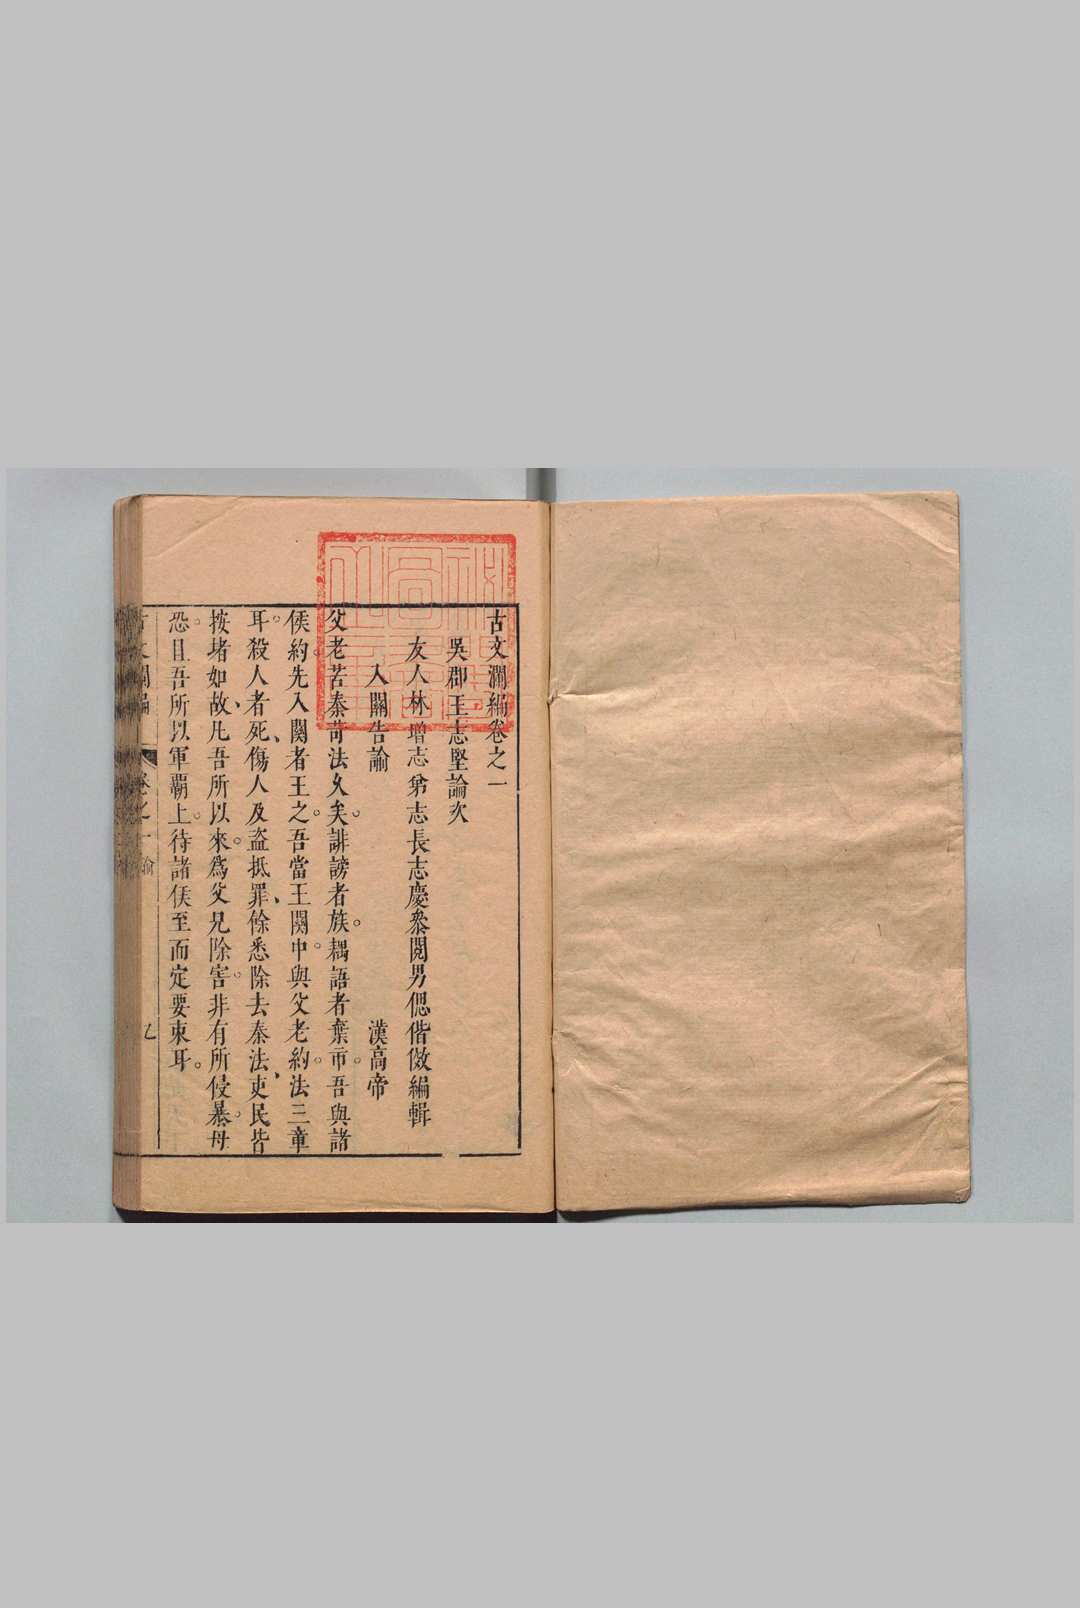 古文瀾編卷之一
吳郡王志堅論次
友人林增志弟志長志慶叅閱男偲偕儆編輯
入關告諭　漢高帝
父老苦秦苛法久矣。誹謗者族。耦語者棄市。吾與諸
侯約。先入關者王之。吾當王關中。與父老約。法三章
耳。殺人者死、傷人及盜抵罪、餘悉除去秦法、吏民皆
按堵如故、凡吾所以來。爲父兄除害。非有所侵暴。毋
恐。且吾所以軍覇上。待諸侯至而定要束耳。
古文瀾編 卷之一 諭